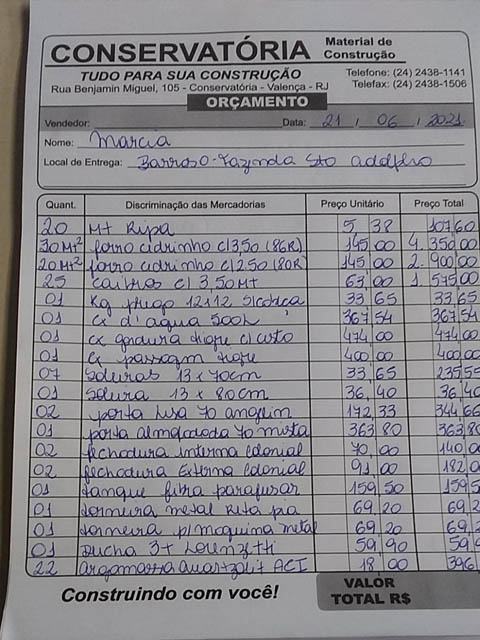 CONSERVATÓRIA Material de Construção
TUDO PARA SUA CONSTRUÇÃO Telefone: (24) 2438-1141
Rua Benjamin Miguel, 105 - Conservatória - Valença - RJ Telefax: (24) 2438-1506
ORÇAMENTO
Vendedor: Data: 21 / 06 / 2021
Nome: Marcia
Local de Entrega: Barroso-Fazenda Sto Adolpho
Quant. Discriminação das Mercadorias Preço Unitário Preço Total
20 Mt Ripa 5,38 107,60
30 Mt² forro cidrinho c/3,50 (86R) 145,00 4.350,00
20 Mt² forro cidrinho c/2,50 (80R) 145,00 2.900,00
25 caibros c/ 3,50 Mt 63,00 1.575,00
01 Kg prego 12x12 s/cabeça 33,65 33,65
01 cx d'agua 500L 367,54 367,54
01 cx gordura tigre c/ cesto 474,00 474,00
01 cx passagem tigre 400,00 400,00
07 soleiras 13x70cm 33,65 235,55
01 soleira 13x80cm 36,40 36,40
02 porta lisa 70 angelim 172,33 344,66
01 porta almofadada 70 mista 363,80 363,80
02 fechadura interna colonial 70,00 140,0
02 fechadura Externa Colonial 91,00 182,0
01 tanque fibra parafusar 159,50 159,5
01 torneira metal Rita pia 69,20 69,2
01 torneira p/ maquina metal 69,20 69,2
01 Ducha 3t Lorenzetti 59,90 59,9
22 argamassa quartzolit ACI 18,00 396
Construindo com você! VALOR TOTAL R$